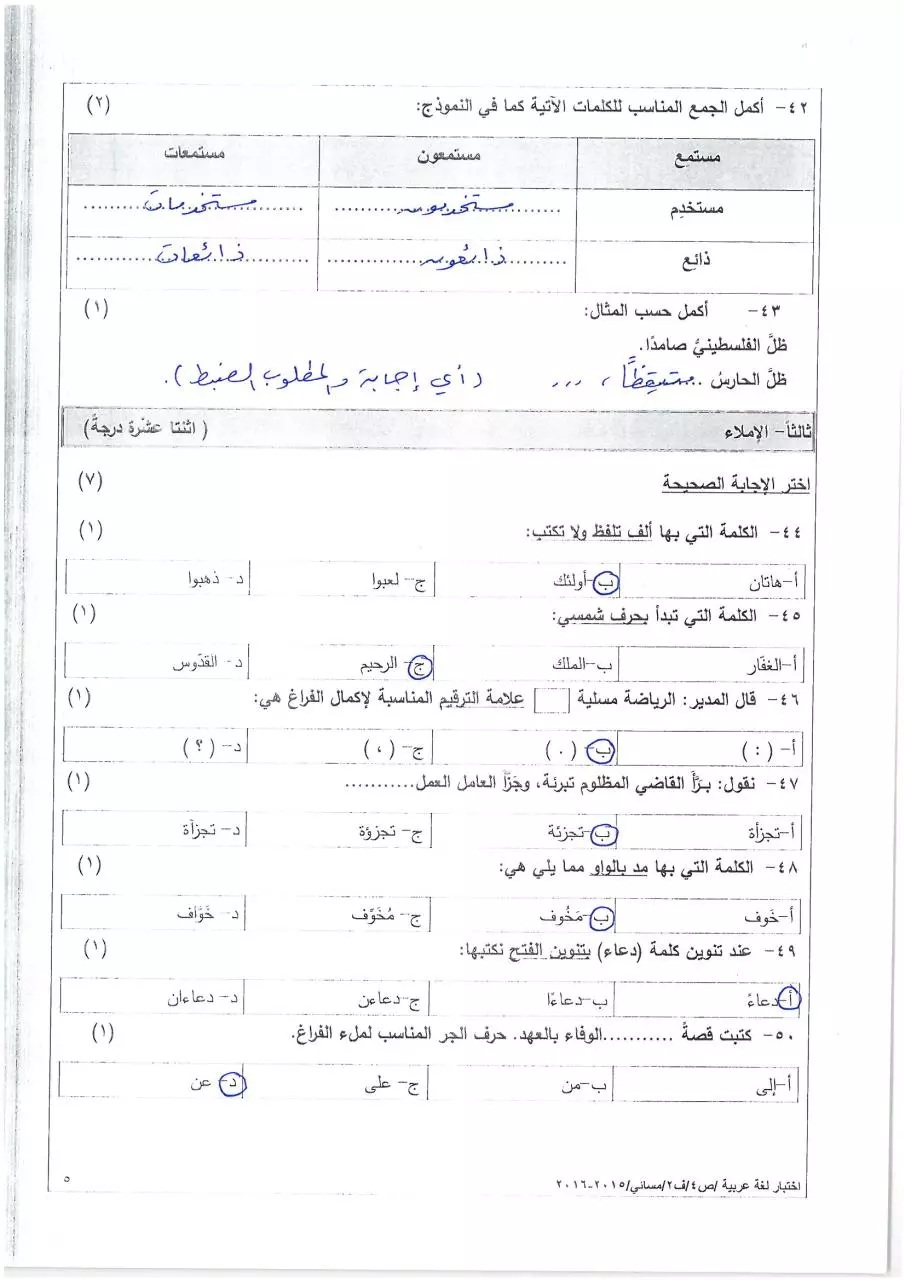 ٤٢- أكمل الجمع المناسب للكلمات الآتية كما في النموذج: (٢)
مستمع مستمعون مستمعات
مستخدِم مستخدمون مستخدمات
ذائع ذائعون ذائعات
٤٣- أكمل حسب المثال: (١)
ظلَّ الفلسطينيُّ صامدًا.
ظلَّ الحارسُ .مستيقظًا ، ... (أي إجابة والمطلوب الضبط).
ثالثاً- الإملاء ( اثنتا عشْرة درجةً)
اختر الإجابة الصحيحة (٧)
٤٤- الكلمة التي بها ألف تلفظ ولا تكتب: (١)
أ-هاتان ب-أولئك ج- لعبوا د- ذهبوا
٤٥- الكلمة التي تبدأ بحرف شمسي: (١)
أ-الغفّار ب-الملك ج- الرحيم د- القدّوس
٤٦- قال المدير: الرياضة مسلية علامة الترقيم المناسبة لإكمال الفراغ هي: (١)
أ- (:) ب- (.) ج- (،) د- (؟)
٤٧- نقول: برَّأ القاضي المظلوم تبرئة، وجَزَّأ العامل العمل........... (١)
أ-تجزأة ب-تجزئة ج- تجزؤة د- تجزآة
٤٨- الكلمة التي بها مد بالواو مما يلي هي: (١)
أ-خَوف ب-مَخُوف ج- مُخَوِّف د- خَوَّاف
٤٩- عند تنوين كلمة (دعاء) بتنوين الفتح نكتبها: (١)
أ-دعاءً ب-دعاءًا ج-دعاءن د- دعاءان
٥٠- كتبت قصةً ...........الوفاء بالعهد. حرف الجر المناسب لملء الفراغ. (١)
أ-إلى ب-من ج- على د- عن
اختبار لغة عربية /ص٤/ف٢/مسائي/٢٠١٥-٢٠١٦ ٥